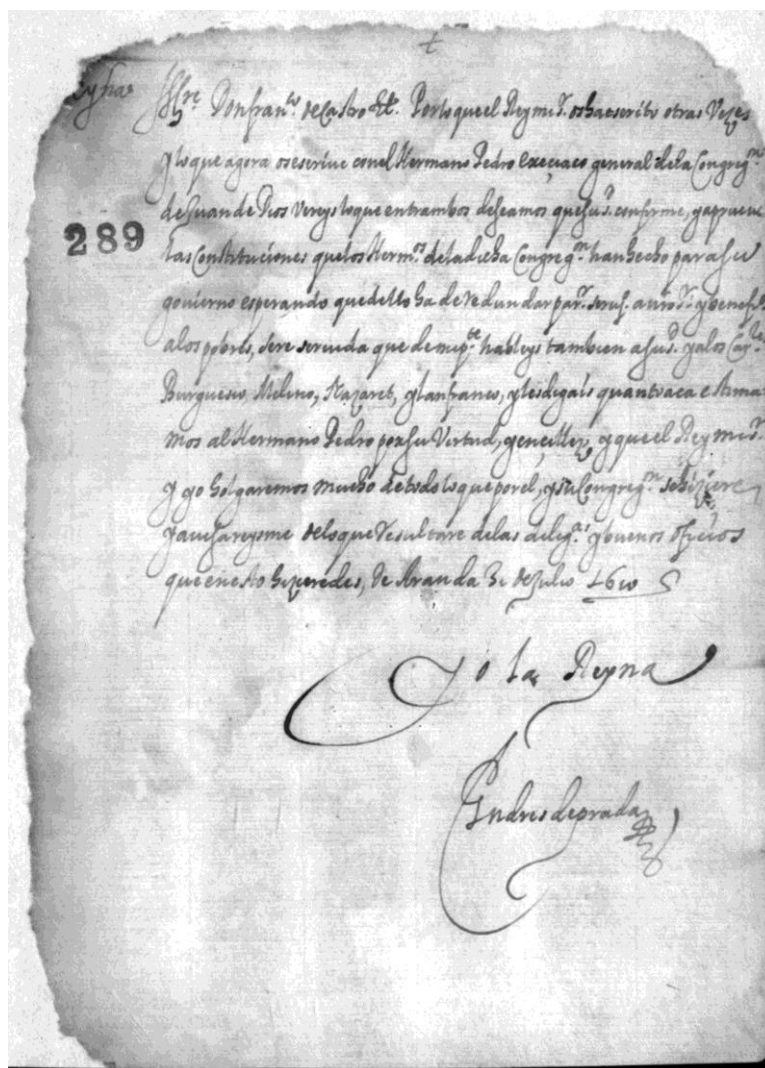 +
Reyna
Illre. Don fran.co de Castro Etc. Por lo que el Rey mi s.r os ha escrito otras Vezes
y lo que agora os escriue con el Hermano Pedro general de la Congreg.on
de Juan de Dios Vereys lo que entrambos deseamos que su s.d confirme, y aprueue
289
las Constituciones que los Herm.os de la dicha Congreg.on han hecho para su
gouierno esperando que dello ha de redundar par.r seru.o a nro s.r y benefi.o
a los pobres, sere seruida que de mi p.te hableys tambien a su s.d y a los Car.les
Burguesio, Melino, Nazaret, y lanfranco, y les digais quanto aca estima
mos al Hermano Pedro por su Virtud, y que el Rey mi s.r
y yo holgaremos mucho de todo lo que por el, y su Congreg.on se hiziere
y auisareysme de lo que resultare de las dilig.as y buenos oficios
que en esto hizieredes, de Aranda 31 de Julio 1610
Yo la Reyna
Andres de prada